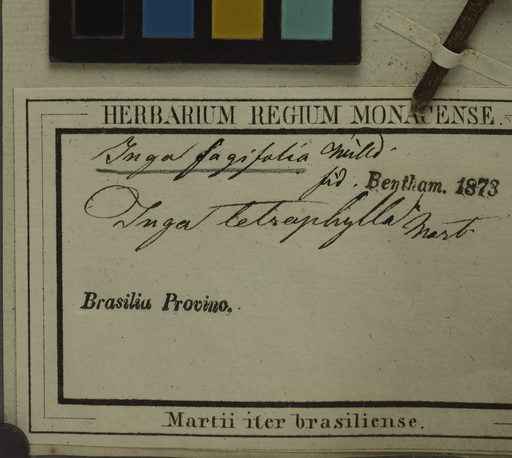 HERBARIUM REGIUM MONACENSE.
Inga fagifolia Willd.
fid. Bentham. 1873
Inga tetraphylla Mart.
Brasilia Provinc.
Martii iter brasiliense.